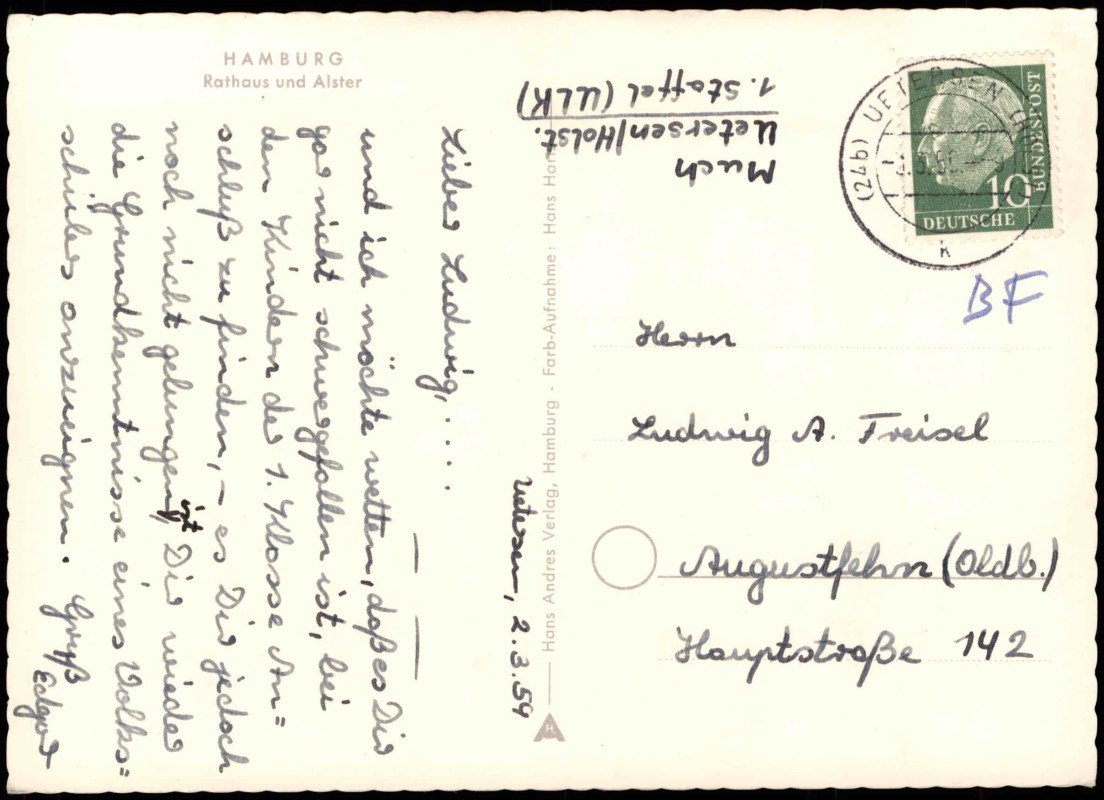 HAMBURG
Rathaus und Alster
Much
Uetersen/Holst.
1. Staffel (ULK)
(24b) UETERSEN
K
10
DEUTSCHE
BUNDESPOST
BF
Uetersen, 2.3.59
Lieber Ludwig, . . . .
und ich möchte wetten, daß es Dir
gar nicht schwergefallen ist, bei
den Kindern der 1. Klasse An=
schluß zu finden, – es Dir jedoch
noch nicht gelungen ist, Dir wieder
die Grundkenntnisse eines Volks=
schülers anzueignen. Gruß
Edgar
Herrn
Ludwig A. Freisel
Augustfehn (Oldb.)
Hauptstraße 142
Hans Andres Verlag, Hamburg - Farb-Aufnahme: Hans Har